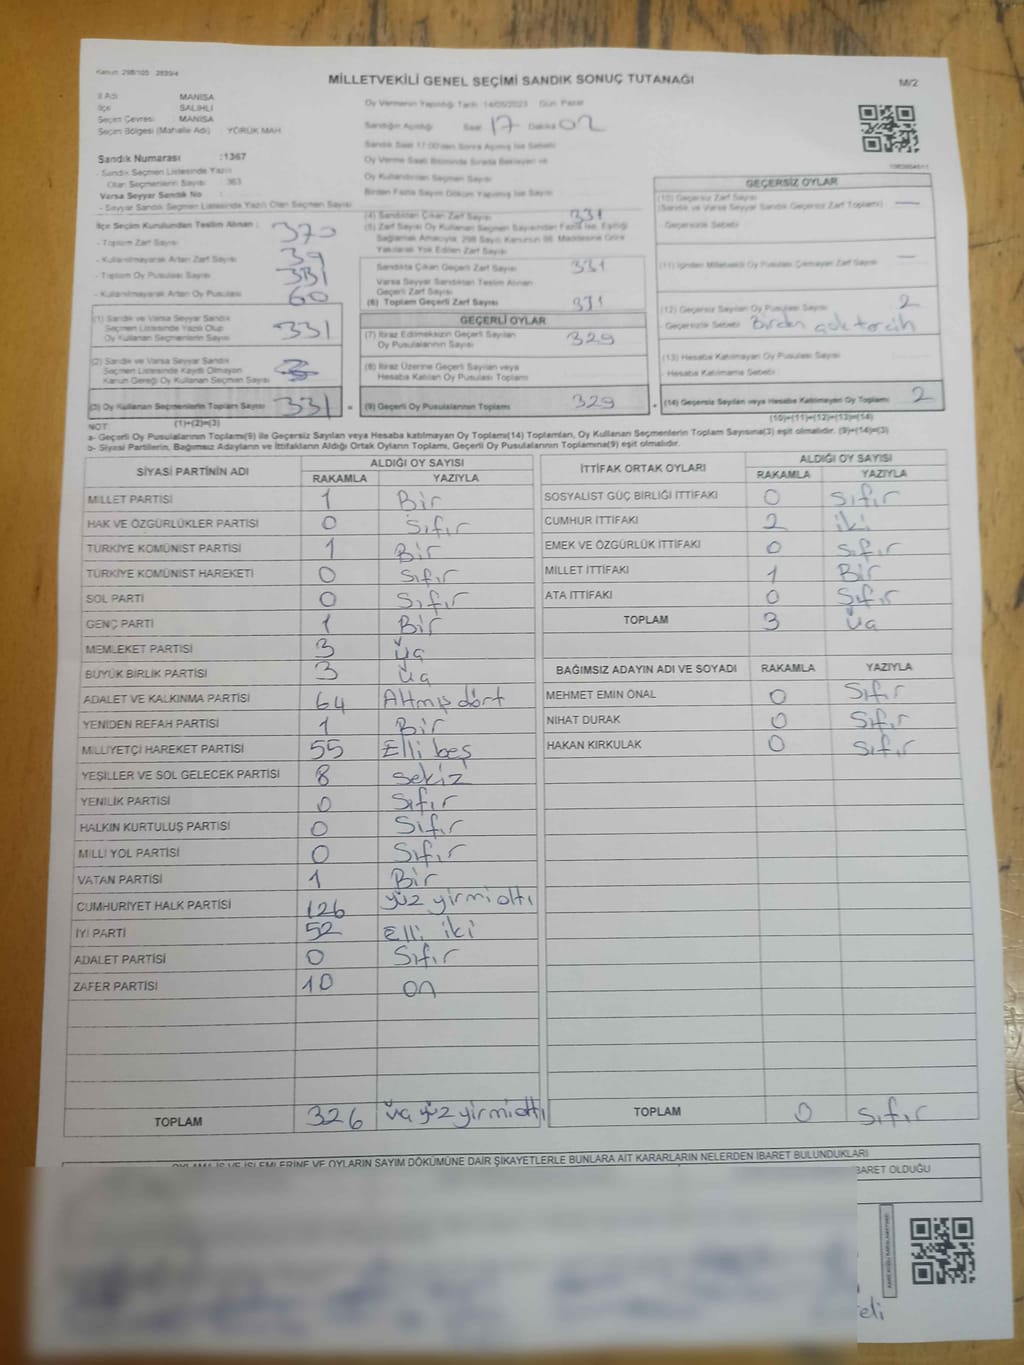 Kanun: 298/105 2839/4
MİLLETVEKİLİ GENEL SEÇİMİ SANDIK SONUÇ TUTANAĞI
M/2
İl Adı : MANİSA
İlçe : SALİHLİ
Seçim Çevresi : MANİSA
Seçim Bölgesi (Mahalle Adı) : YÖRÜK MAH.
Sandık Numarası : 1367
- Sandık Seçmen Listesinde Yazılı
Olan Seçmenlerin Sayısı : 363
Varsa Seyyar Sandık No :
- Seyyar Sandık Seçmen Listesinde Yazılı Olan Seçmen Sayısı
Oy Vermenin Yapıldığı Tarih : 14/05/2023 Gün: Pazar
Sandığın Açıldığı Saat 17 Dakika 02
Sandık Saat 17:00'den Sonra Açılmış İse Sebebi
Oy Verme Saati Bitiminde Sırada Bekleyen ve
Oy Kullandırılan Seçmen Sayısı
Birden Fazla Sayım Döküm Yapılmış İse Sayısı
İlçe Seçim Kurulundan Teslim Alınan :
- Toplam Zarf Sayısı 370
- Kullanılmayarak Artan Zarf Sayısı 39
- Toplam Oy Pusulası Sayısı
- Kullanılmayarak Artan Oy Pusulası 60
(1) Sandık ve Varsa Seyyar Sandık
Seçmen Listesinde Yazılı Olup
Oy Kullanan Seçmenlerin Sayısı 331
(2) Sandık ve Varsa Seyyar Sandık
Seçmen Listesinde Kayıtlı Olmayan
Kanun Gereği Oy Kullanan Seçmen Sayısı
(3) Oy Kullanan Seçmenlerin Toplam Sayısı 331 =
(1)+(2)=(3)
(4) Sandıktan Çıkan Zarf Sayısı 331
(5) Zarf Sayısı Oy Kullanan Seçmen Sayısından Fazla İse, Eşitliği
Sağlamak Amacıyla, 298 Sayılı Kanunun 98. Maddesine Göre
Yakılarak Yok Edilen Zarf Sayısı
Sandıkta Çıkan Geçerli Zarf Sayısı 331
Varsa Seyyar Sandıktan Teslim Alınan
Geçerli Zarf Sayısı
(6) Toplam Geçerli Zarf Sayısı 331
GEÇERLİ OYLAR
(7) İtiraz Edilmeksizin Geçerli Sayılan
Oy Pusulalarının Sayısı 329
(8) İtiraz Üzerine Geçerli Sayılan veya
Hesaba Katılan Oy Pusulası Toplamı
(9) Geçerli Oy Pusulalarının Toplamı 329 +
GEÇERSİZ OYLAR
(10) Geçersiz Zarf Sayısı
(Sandık ve Varsa Seyyar Sandık Geçersiz Zarf Toplamı) —
- Geçersizlik Sebebi
(11) İçinden Milletvekili Oy Pusulası Çıkmayan Zarf Sayısı —
(12) Geçersiz Sayılan Oy Pusulası Sayısı 2
- Geçersizlik Sebebi Birden çok tercih
(13) Hesaba Katılmayan Oy Pusulası Sayısı
- Hesaba Katılmama Sebebi
(14) Geçersiz Sayılan veya Hesaba Katılmayan Oy Toplamı 2
(10)+(11)+(12)+(13)=(14)
NOT:
a- Geçerli Oy Pusulalarının Toplamı(9) ile Geçersiz Sayılan veya Hesaba katılmayan Oy Toplamı(14) Toplamları, Oy Kullanan Seçmenlerin Toplam Sayısına(3) eşit olmalıdır. (9)+(14)=(3)
b- Siyasi Partilerin, Bağımsız Adayların ve İttifakların Aldığı Ortak Oyların Toplamı, Geçerli Oy Pusulalarının Toplamına(9) eşit olmalıdır.
SİYASİ PARTİNİN ADI ALDIĞI OY SAYISI
RAKAMLA YAZIYLA
MİLLET PARTİSİ 1 Bir
HAK VE ÖZGÜRLÜKLER PARTİSİ 0 Sıfır
TÜRKİYE KOMÜNİST PARTİSİ 1 Bir
TÜRKİYE KOMÜNİST HAREKETİ 0 Sıfır
SOL PARTİ 0 Sıfır
GENÇ PARTİ 1 Bir
MEMLEKET PARTİSİ 3 üç
BÜYÜK BİRLİK PARTİSİ 3 üç
ADALET VE KALKINMA PARTİSİ 64 Altmış dört
YENİDEN REFAH PARTİSİ 1 Bir
MİLLİYETÇİ HAREKET PARTİSİ 55 Elli beş
YEŞİLLER VE SOL GELECEK PARTİSİ 8 sekiz
YENİLİK PARTİSİ 0 Sıfır
HALKIN KURTULUŞ PARTİSİ 0 Sıfır
MİLLİ YOL PARTİSİ 0 Sıfır
VATAN PARTİSİ 1 Bir
CUMHURİYET HALK PARTİSİ 126 yüz yirmi altı
İYİ PARTİ 52 Elli iki
ADALET PARTİSİ 0 Sıfır
ZAFER PARTİSİ 10 on
TOPLAM 326 üç yüz yirmi altı
İTTİFAK ORTAK OYLARI ALDIĞI OY SAYISI
RAKAMLA YAZIYLA
SOSYALİST GÜÇ BİRLİĞİ İTTİFAKI 0 Sıfır
CUMHUR İTTİFAKI 2 iki
EMEK VE ÖZGÜRLÜK İTTİFAKI 0 Sıfır
MİLLET İTTİFAKI 1 Bir
ATA İTTİFAKI 0 Sıfır
TOPLAM 3 üç
BAĞIMSIZ ADAYIN ADI VE SOYADI RAKAMLA YAZIYLA
MEHMET EMİN ÖNAL 0 Sıfır
NİHAT DURAK 0 Sıfır
HAKAN KIRKULAK 0 Sıfır
TOPLAM 0 Sıfır
OYLAMA İŞ VE İŞLEMLERİNE VE OYLARIN SAYIM DÖKÜMÜNE DAİR ŞİKAYETLERLE BUNLARA AİT KARARLARIN NELERDEN İBARET BULUNDUKLARI
BARET OLDUĞU
eli